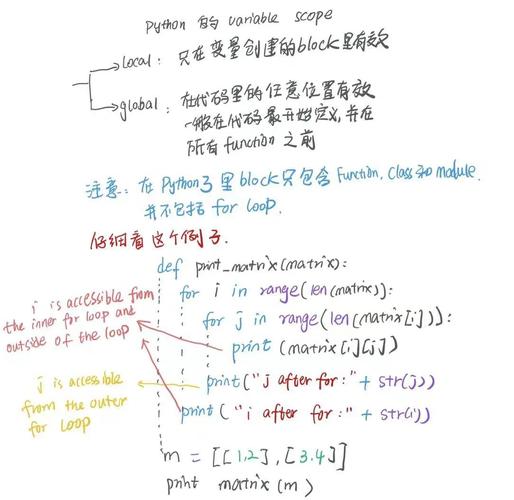 Python 的 variable scope
local: 只在变量创建的block里有效
global: 在代码里的任意位置有效
一般在代码最开始定义,并在
所有 function 之前
注意: 在 Python 3 里 block 只包含 Function, Class 和 module.
并不包括 for loop.
仔细看这个例子.
def print_matrix(matrix):
for i in range(len(matrix)):
for j in range(len(matrix[i])):
print (matrix[i][j])
print("j after for:" + str(j))
print("i after for:" + str(i))
m = [[1,2],[3.4]]
print matrix (m)
i is accessible from
the inner for loop and
outside of the loop
j is accessible
from the outer
for loop